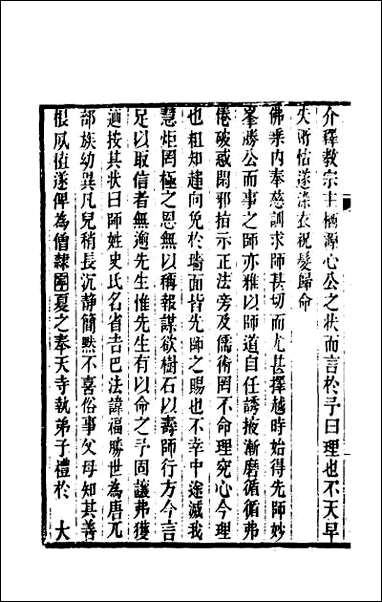 介釋教宗主栖源心公之狀而言於予曰理也不天早
失所怙遂染衣祝髮歸命
佛乘內奉慈訓求師甚切而尤甚擇越時始得先師妙
峯勝公而事之師亦雅以師道自任誘掖漸磨循循弗
倦破惑閑邪拍示正法旁及儒術罔不命理究心今理
也粗知趨向免於墻面皆先師之賜也不幸中途滅我
慧炬罔極之恩無以稱報謀欲樹石以壽師行方今言
足以取信者無逾先生惟先生有以命之予固讓弗獲
遒按其狀曰師姓史氏名者吉巴法諱福勝世為唐兀
部族幼異凡兒稍長沉静簡黙不喜俗事父母知其善
根夙植遂俾為僧隸圍夏之奉天寺執弟子禮於　大